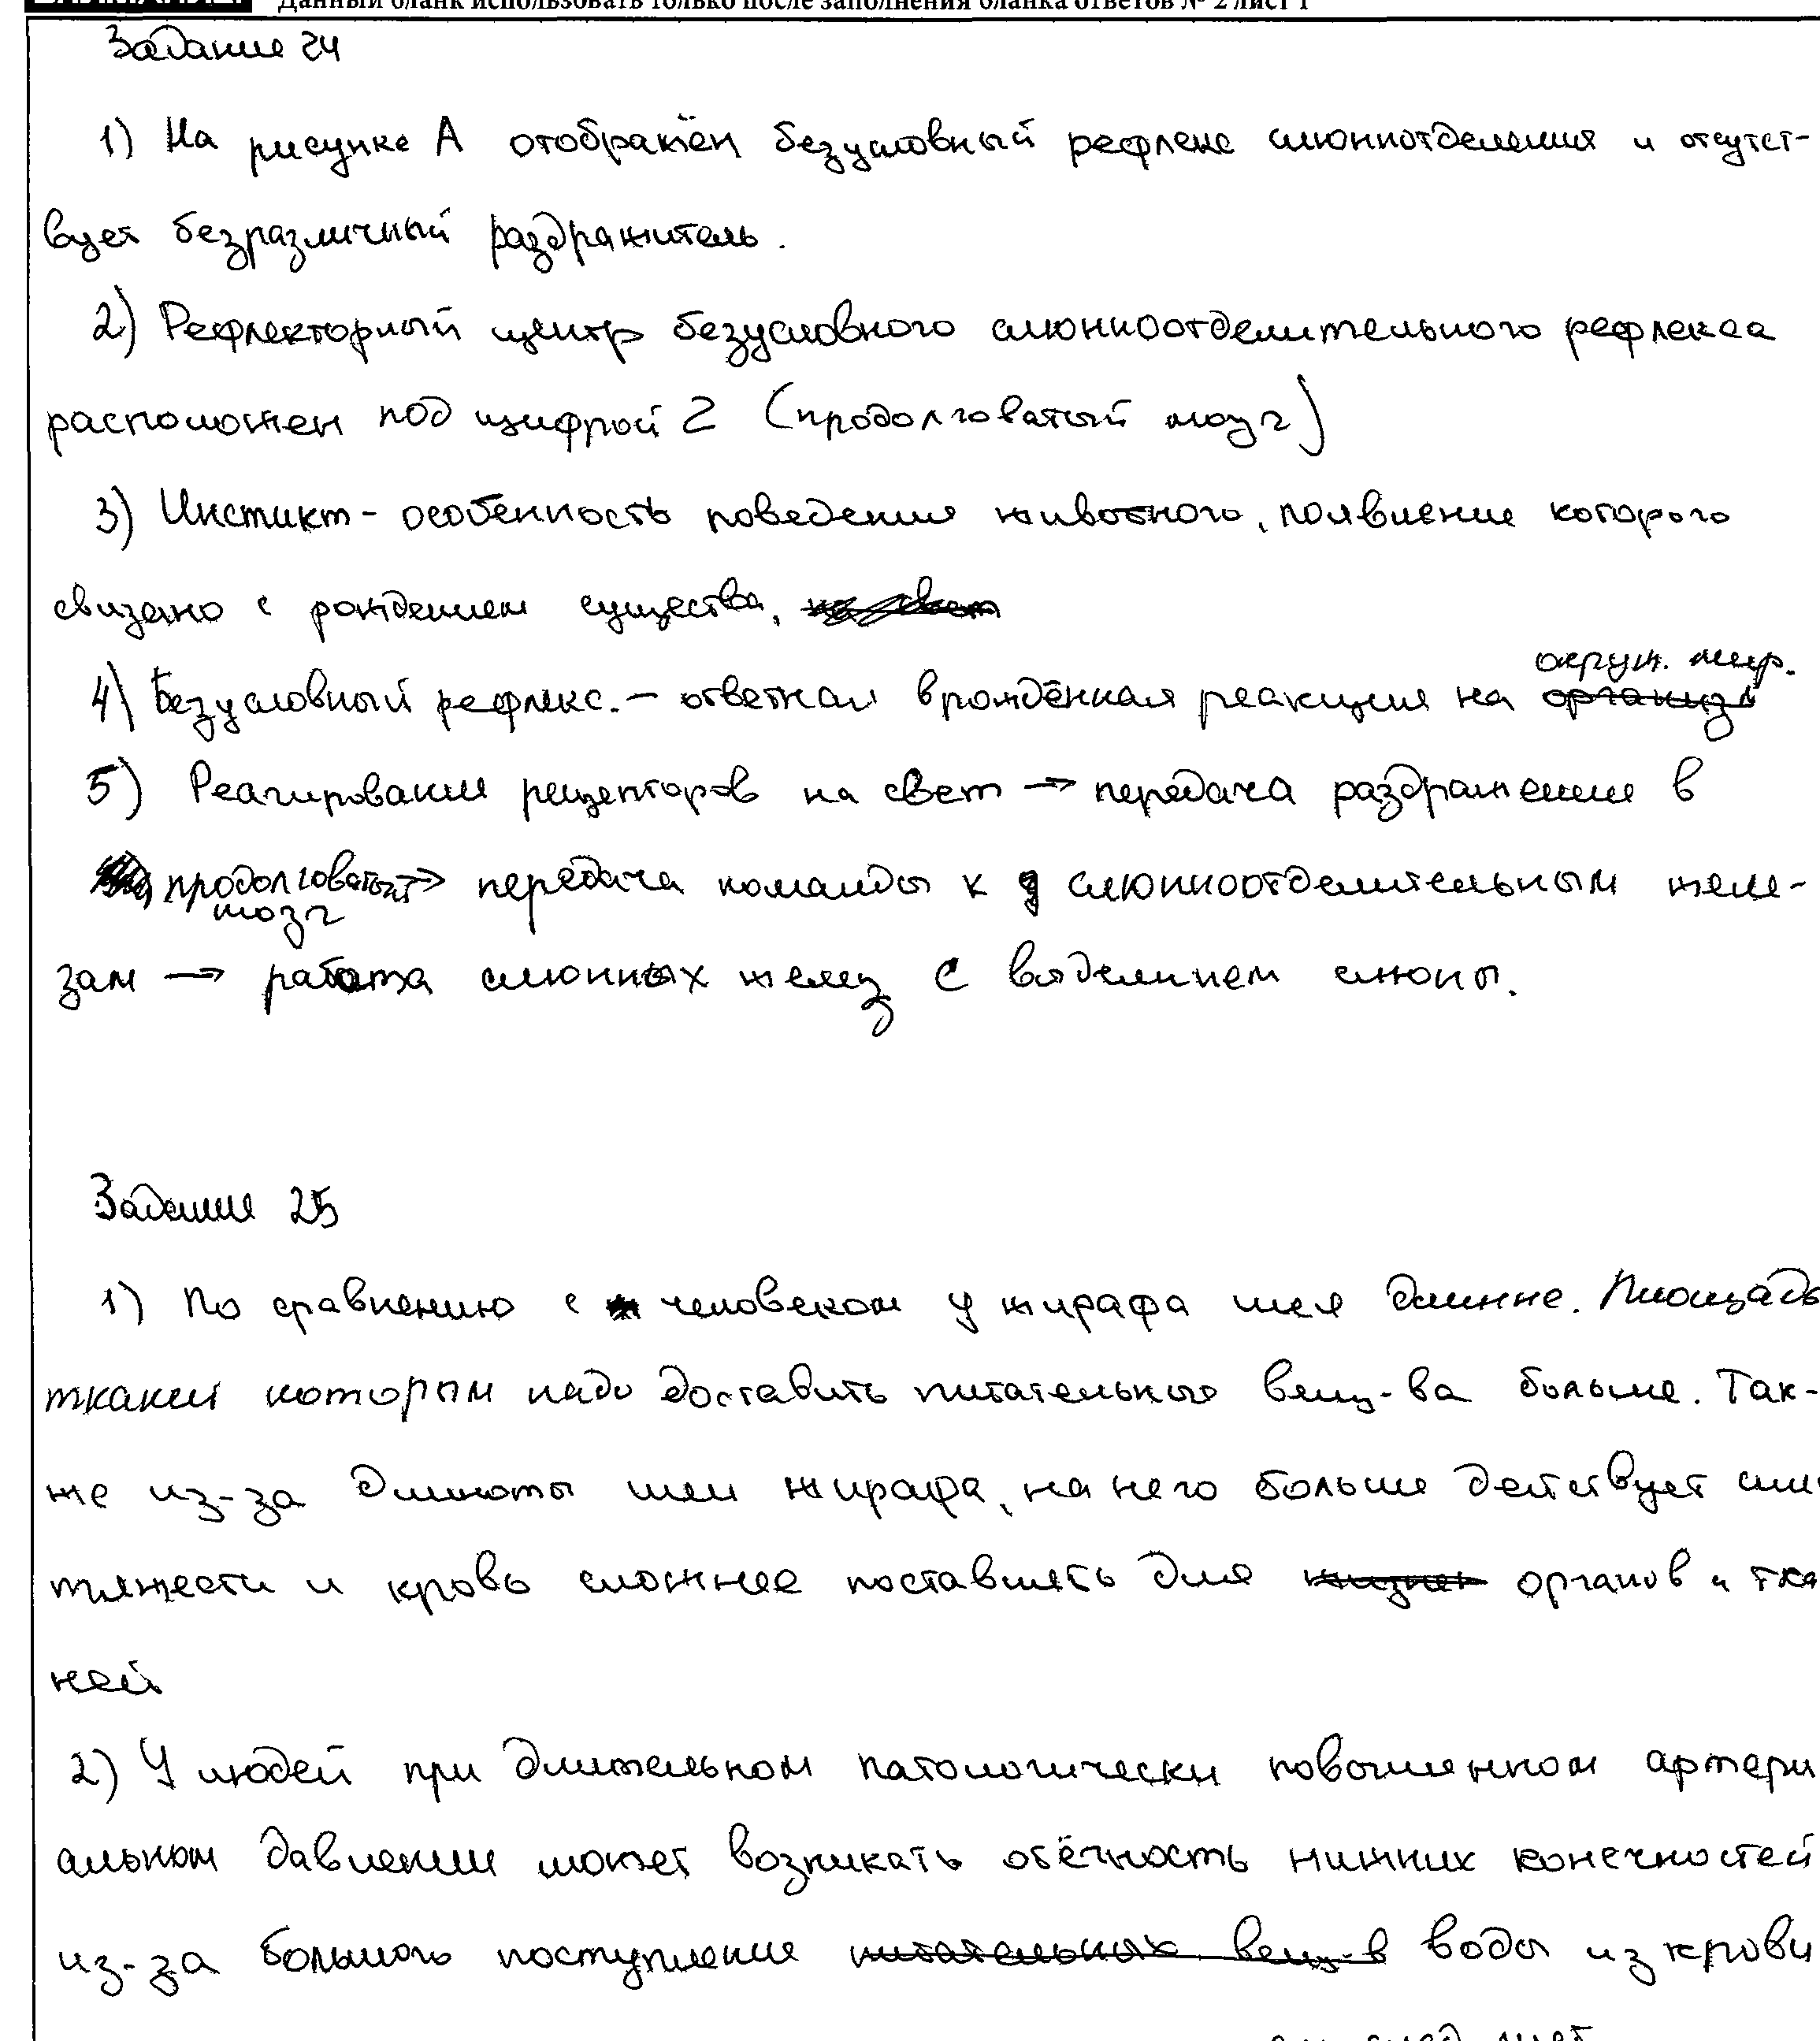 Данный бланк использовать только после заполнения бланка ответов № 2 лист 1
Задание 24
1) На рисунке А отображён безусловный рефлекс слюнноотделения и отсутст-
вует безразличный раздражитель.
2) Рефлекторный центр безусловного слюнноотделительного рефлекса
расположен под цифрой 2 (продолговатый мозг)
3) Инстикт - особенность поведения животного, появление которого
связано с рождением существа,
4) Безусловный рефлекс. - ответная врождённая реакция на окруж. мир.
5) Реагирование рецепторов на свет → передача раздражения в
продолговатый мозг → передача команды к слюнноотделительным желе-
зам → работа слюнных желез с выделением слюны.
Задание 25
1) По сравнению с человеком у жирафа шея длинне. Площадь
тканей которым надо доставить питательные вещ-ва больше. Так-
же из-за длинноты шеи жирафа, на него больше действует сил
тяжести и кровь сложнее поставлять для органов и тка
ней
2) У людей при длительном патологически повышенном артери
альном давлении может возникать отёчность нижних конечностей
из-за большого поступления воды из крови